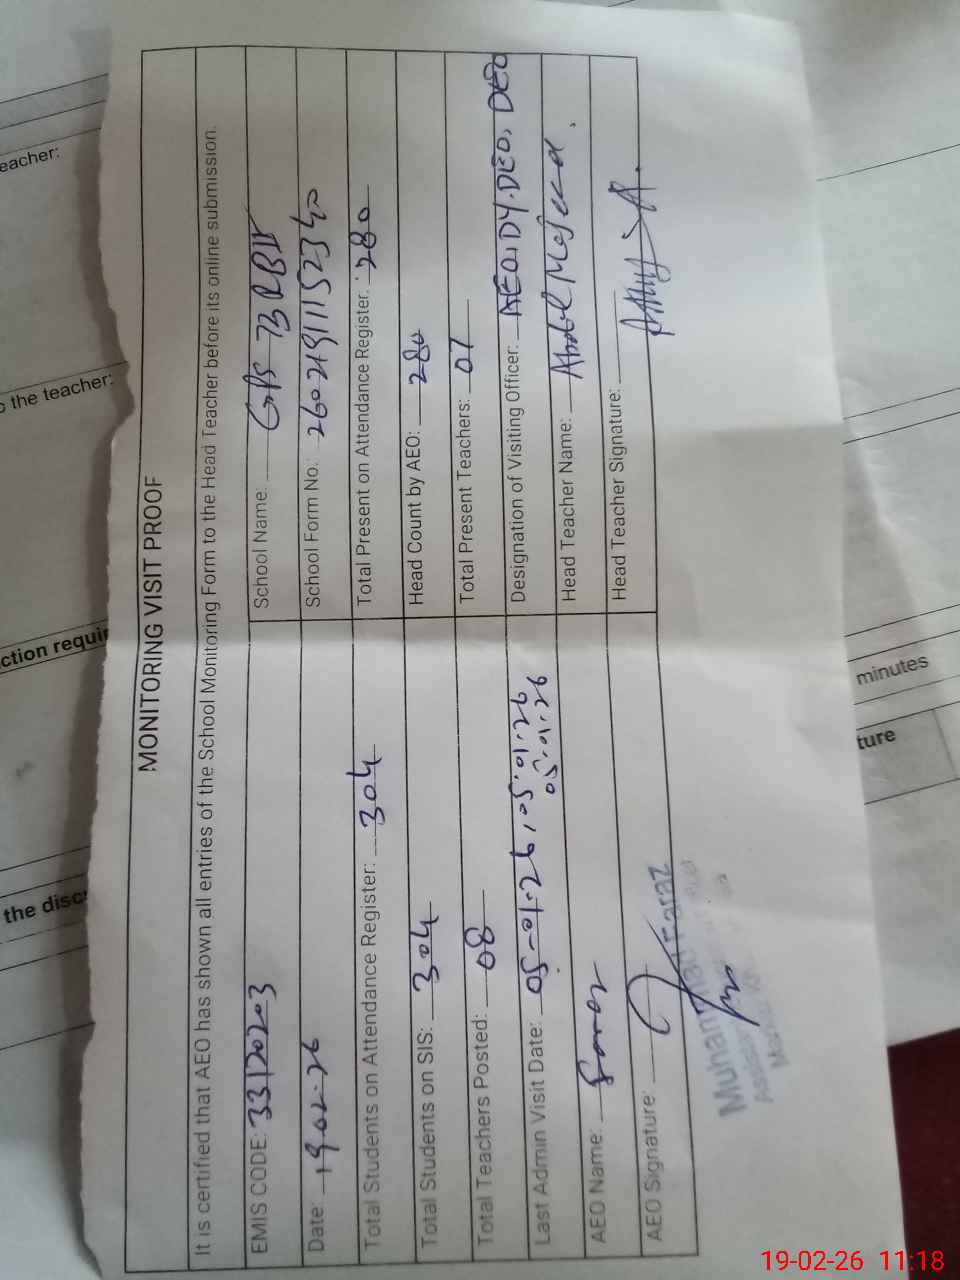 MONITORING VISIT PROOF
It is certified that AEO has shown all entries of the School Monitoring Form to the Head Teacher before its online submission.
EMIS CODE: 33120203
School Name: GPS 73 RB IV
Date: 19-02-26
School Form No.: 26021911152340
Total Students on Attendance Register: 304
Total Present on Attendance Register: 280
Total Students on SIS: 304
Head Count by AEO: 280
Total Teachers Posted: 08
Total Present Teachers: 07
Last Admin Visit Date: 05-01-26, 05.01.26
05.01.26
Designation of Visiting Officer: AEO, DY.DEO, DEO
AEO Name:
Head Teacher Name: Abdul Majeed
AEO Signature:
Head Teacher Signature:
Muhammad Faraz
eacher:
o the teacher:
ction requir
the disc
minutes
ture
19-02-26 11:18